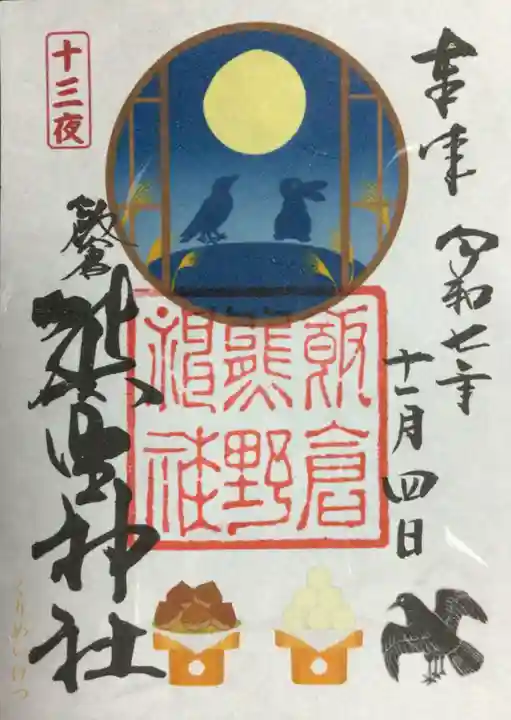 奉拝
令和七年
十一月四日
飯倉
熊野
神社
十三夜
飯倉
熊野神社
くりめいげつ